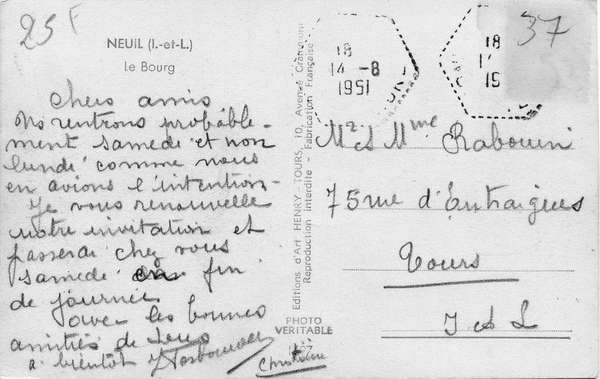 25 F
37
NEUIL (I.-et-L.)
Le Bourg
18
14 -8
1951
18
Chers amis
Ns rentrons probable-
ment samedi et non
lundi comme nous
en avions l'intention-
Je vous renouvelle
notre invitation et
passerai chez vous
samedi en fin
de journée
avec les bonnes
amitiés de
a bientôt
Christiane
Editions d'Art HENRY-TOURS, 10, Avenue
Reproduction Interdite - Fabrication Française
PHOTO
VERITABLE
Mr et Mme Rabouin
75 rue d'Entraigues
Tours
I & L